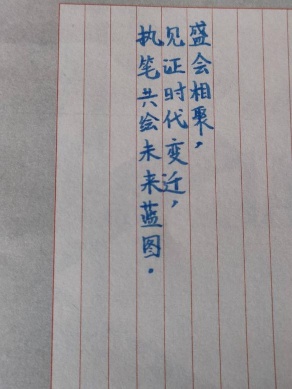 盛会相聚，
见证时代变迁，
执笔共绘未来蓝图.